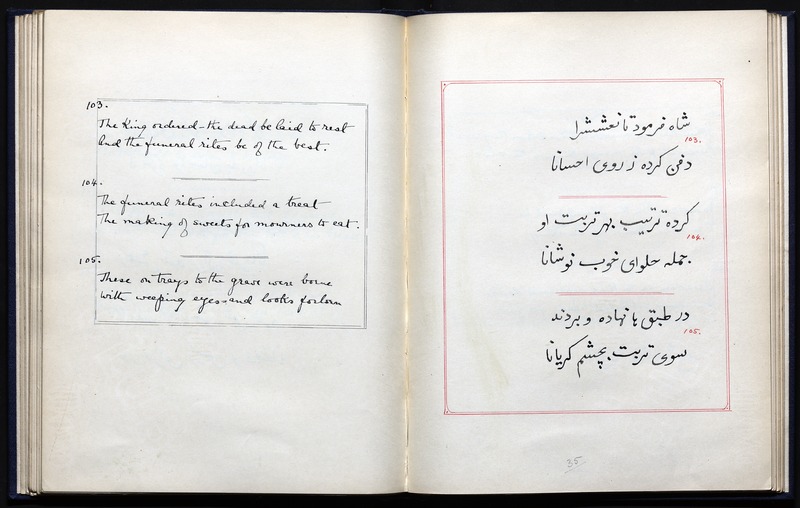 103.
The King ordered the dead be laid to rest
And the funeral rites be of the best.
104.
The funeral rites included a treat
The making of sweets for mourners to eat.
105.
These on trays to the grave were borne
With weeping eyes and looks forlorn
شاه فرمود تا نعششرا
103.
دفن کرده ز روی احسانا
کرده ترتیب بهر تربت او
104.
جمله حلوای خوب نوشانا
در طبق ها نهاده و بردند
105.
سوی تربت بچشم کریانا
35